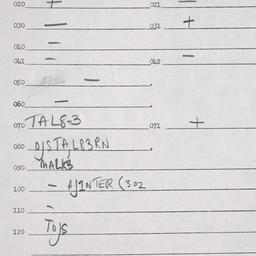 020 + 021 —
030 — 031 +
040 —
041 — 042 —
050 —
060 —
070 TAL8-3 071 +
080 OJSTAL83RN
090 MALKS
100 - AJINTER (302
110 -
120 TOJS